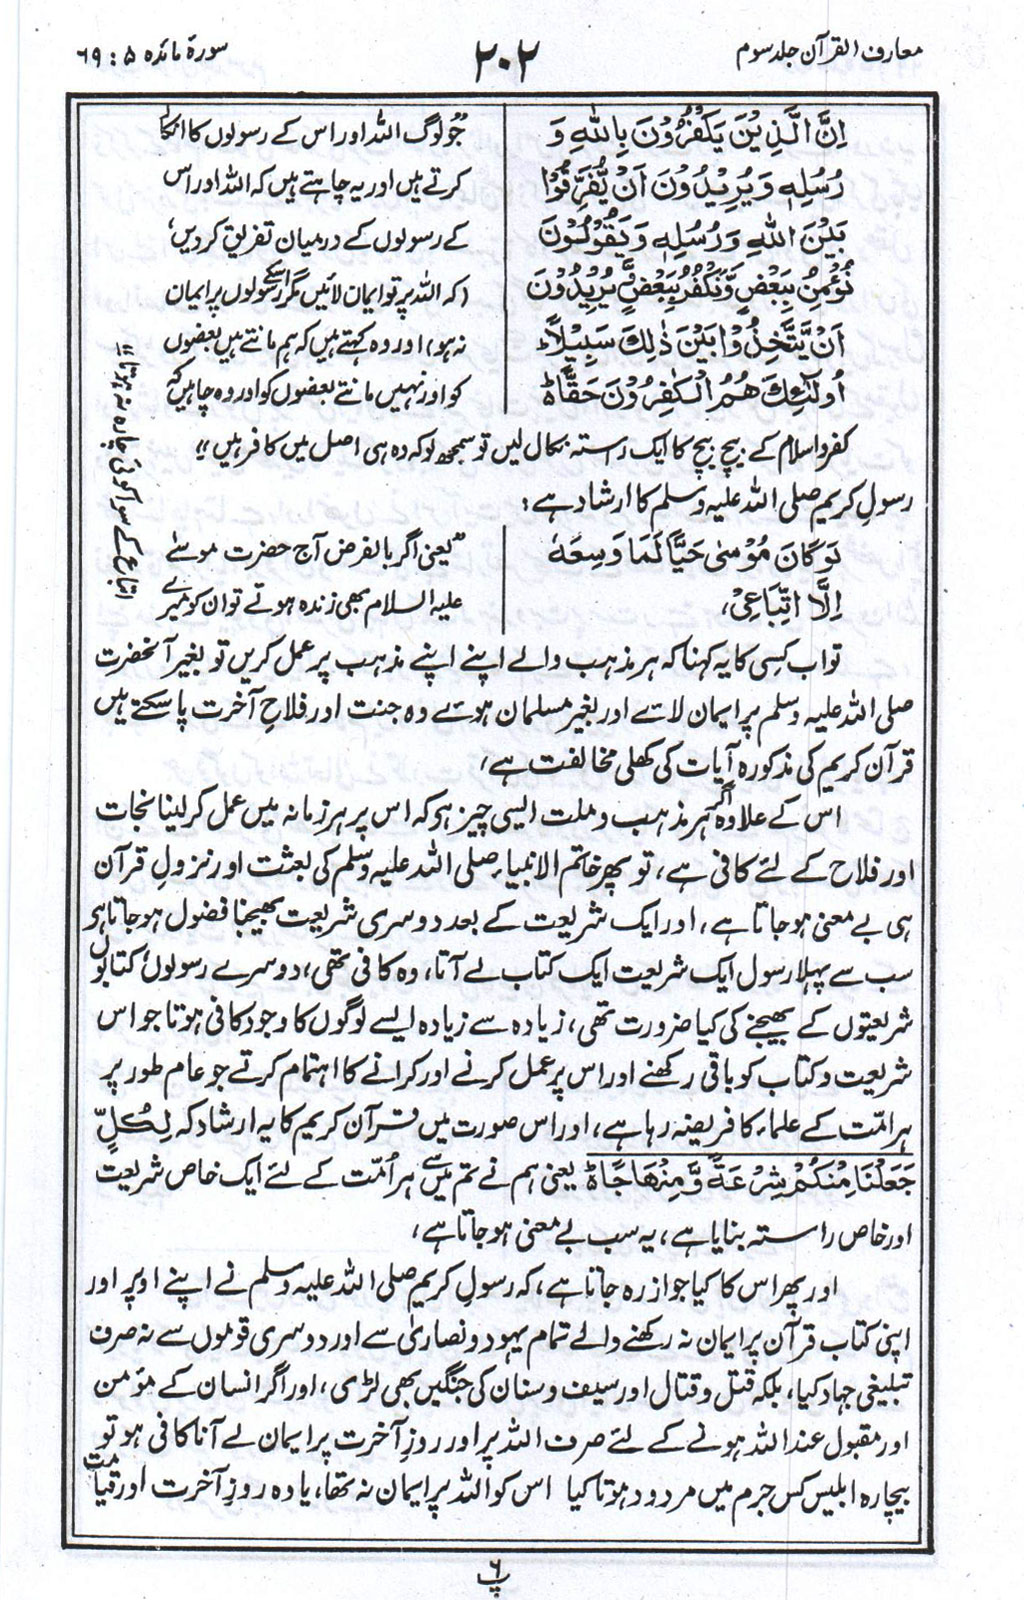 معارف القرآن جلد سوم
۲۰۲
سورۂ مائدہ ۵ : ۶۹
اِنَّ الَّذِیْنَ یَکْفُرُوْنَ بِاللّٰہِ وَ
رُسُلِہٖ وَیُرِیْدُوْنَ اَنْ یُّفَرِّقُوْا
بَیْنَ اللّٰہِ وَرُسُلِہٖ وَیَقُوْلُوْنَ
نُؤْمِنُ بِبَعْضٍ وَّنَکْفُرُ بِبَعْضٍ وَّیُرِیْدُوْنَ
اَنْ یَّتَّخِذُوْا بَیْنَ ذٰلِکَ سَبِیْلًا
اُولٰٓئِکَ ھُمُ الْکٰفِرُوْنَ حَقًّا
”جو لوگ اللہ اور اس کے رسولوں کا انکار
کرتے ہیں اور یہ چاہتے ہیں کہ اللہ اور اس
کے رسولوں کے درمیان تفریق کردیں،
(کہ اللہ پر تو ایمان لائیں مگر اسکے رسولوں پر ایمان
نہ ہو) اور وہ کہتے ہیں کہ ہم مانتے ہیں بعضوں
کو اور نہیں مانتے بعضوں کو اور وہ چاہیں کہ
کفر و اسلام کے بیچ بیچ کا ایک رستہ نکال لیں تو سمجھ لو کہ وہ ہی اصل میں کافر ہیں“
رسول کریم صلی اللہ علیہ وسلم کا ارشاد ہے:
لَوْ کَانَ مُوْسٰی حَیًّا لَمَا وَسِعَہٗ
اِلَّا اتِّبَاعِیْ،
”یعنی اگر بالفرض آج حضرت موسےٰ
علیہ السلام بھی زندہ ہوتے تو ان کو میرے
اتباع کے سوا کوئی چارہ نہ ہوتا“
تو اب کسی کا یہ کہنا کہ ہر مذہب والے اپنے اپنے مذہب پر عمل کریں تو بغیر آنحضرت
صلی اللہ علیہ وسلم پر ایمان لائے اور بغیر مسلمان ہوئے وہ جنت اور فلاحِ آخرت پا سکتے ہیں
قرآن کریم کی مذکورہ آیات کی کھلی مخالفت ہے،
اس کے علاوہ اگر ہر مذہب و ملت ایسی چیز ہو کہ اس پر ہر زمانہ میں عمل کر لینا نجات
اور فلاح کے لئے کافی ہے، تو پھر خاتم الانبیاء صلی اللہ علیہ وسلم کی بعثت اور نزولِ قرآن
ہی بے معنی ہوجاتا ہے، اور ایک شریعت کے بعد دوسری شریعت بھیجنا فضول ہوجاتا ہی
سب سے پہلا رسول ایک شریعت ایک کتاب لے آتا، وہ کافی تھی، دوسرے رسولوں، کتابوں
شریعتوں کے بھیجنے کی کیا ضرورت تھی، زیادہ سے زیادہ ایسے لوگوں کا وجود کافی ہوتا جو اس
شریعت و کتاب کو باقی رکھنے اور اس پر عمل کرنے اور کرانے کا اہتمام کرتے جو عام طور پر
ہر امّت کے علماء کا فریضہ رہا ہے، اور اس صورت میں قرآن کریم کا یہ ارشاد کہ لِکُلٍّ
جَعَلْنَا مِنْکُمْ شِرْعَۃً وَّمِنْھَاجًا یعنی ہم نے تم میں سے ہر اُمّت کے لئے ایک خاص شریعت
اور خاص راستہ بنایا ہے، یہ سب بے معنی ہو جاتا ہے،
اور پھر اس کا کیا جواز رہ جاتا ہے، کہ رسولِ کریم صلی اللہ علیہ وسلم نے اپنے اوپر اور
اپنی کتاب قرآن پر ایمان نہ رکھنے والے تمام یہود و نصاریٰ سے اور دوسری قوموں سے نہ صرف
تبلیغی جہاد کیا، بلکہ قتل و قتال اور سیف و سنان کی جنگیں بھی لڑی، اور اگر انسان کے مؤمن
اور مقبول عند اللہ ہونے کے لئے صرف اللہ پر اور روزِ آخرت پر ایمان لے آنا کافی ہو تو
بیچارہ ابلیس کس جرم میں مردود ہوتا کیا اس کو اللہ پر ایمان نہ تھا، یا وہ روزِ آخرت اور قیامت
پ ۶